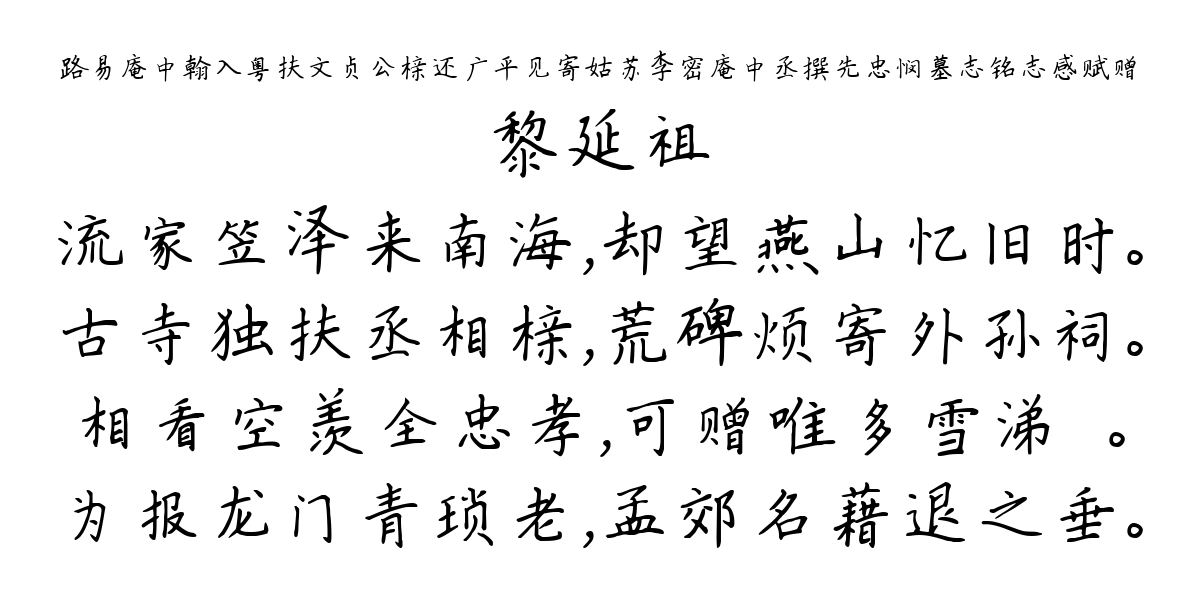 路易庵中翰入粤扶文贞公榇还广平见寄姑苏李密庵中丞撰先忠悯墓志铭志感赋赠
黎延祖
流家笠泽来南海,却望燕山忆旧时。
古寺独扶丞相榇,荒碑烦寄外孙祠。
相看空羡全忠孝,可赠唯多雪涕 。
为报龙门青琐老,孟郊名藉退之垂。